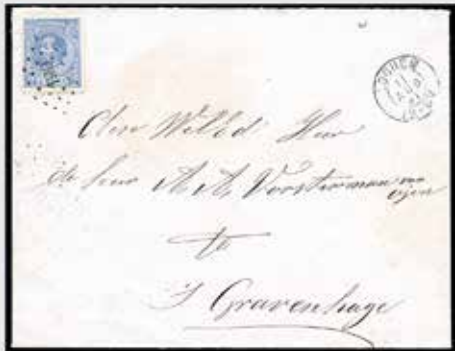 Den WelEd Heer
de heer A A Vorsterman van
Oijen
te
S Gravenhage